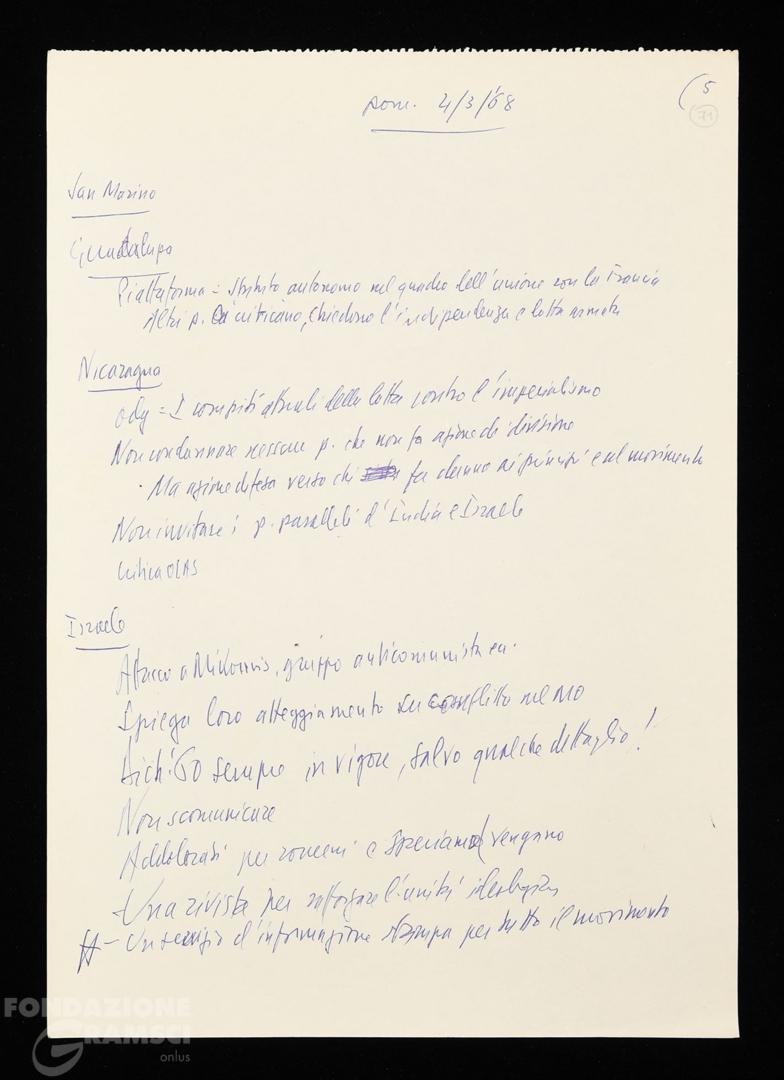 pom. 4/3/68
(5
71
San Marino
Guadalupa
Piattaforma = statuto autonomo nel quadro dell'unione con la Francia
Altri p. criticano, chiedono l'indipendenza e lotta armata
Nicaragua
odg = I compiti attuali della lotta contro l'imperialismo
Non condannare nessun p. che non fa azione di divisione
Ma azione difesa verso chi fa danno ai principi e al movimento
Non invitare i p. paralleli d'India e Israele
Critica OLAS
Israele
Attacco a Mikounis, gruppo anticomunista
Spiega loro atteggiamento su conflitto nel MO
Dich. 60 sempre in vigore, salvo qualche dettaglio!
Non scomunicare
Addolorati per romeni e speriamo vengano
- Una rivista per rafforzare l'unità ideologica
- Un servizio d'informazione stampa per tutto il movimento
FONDAZIONE
GRAMSCI
onlus